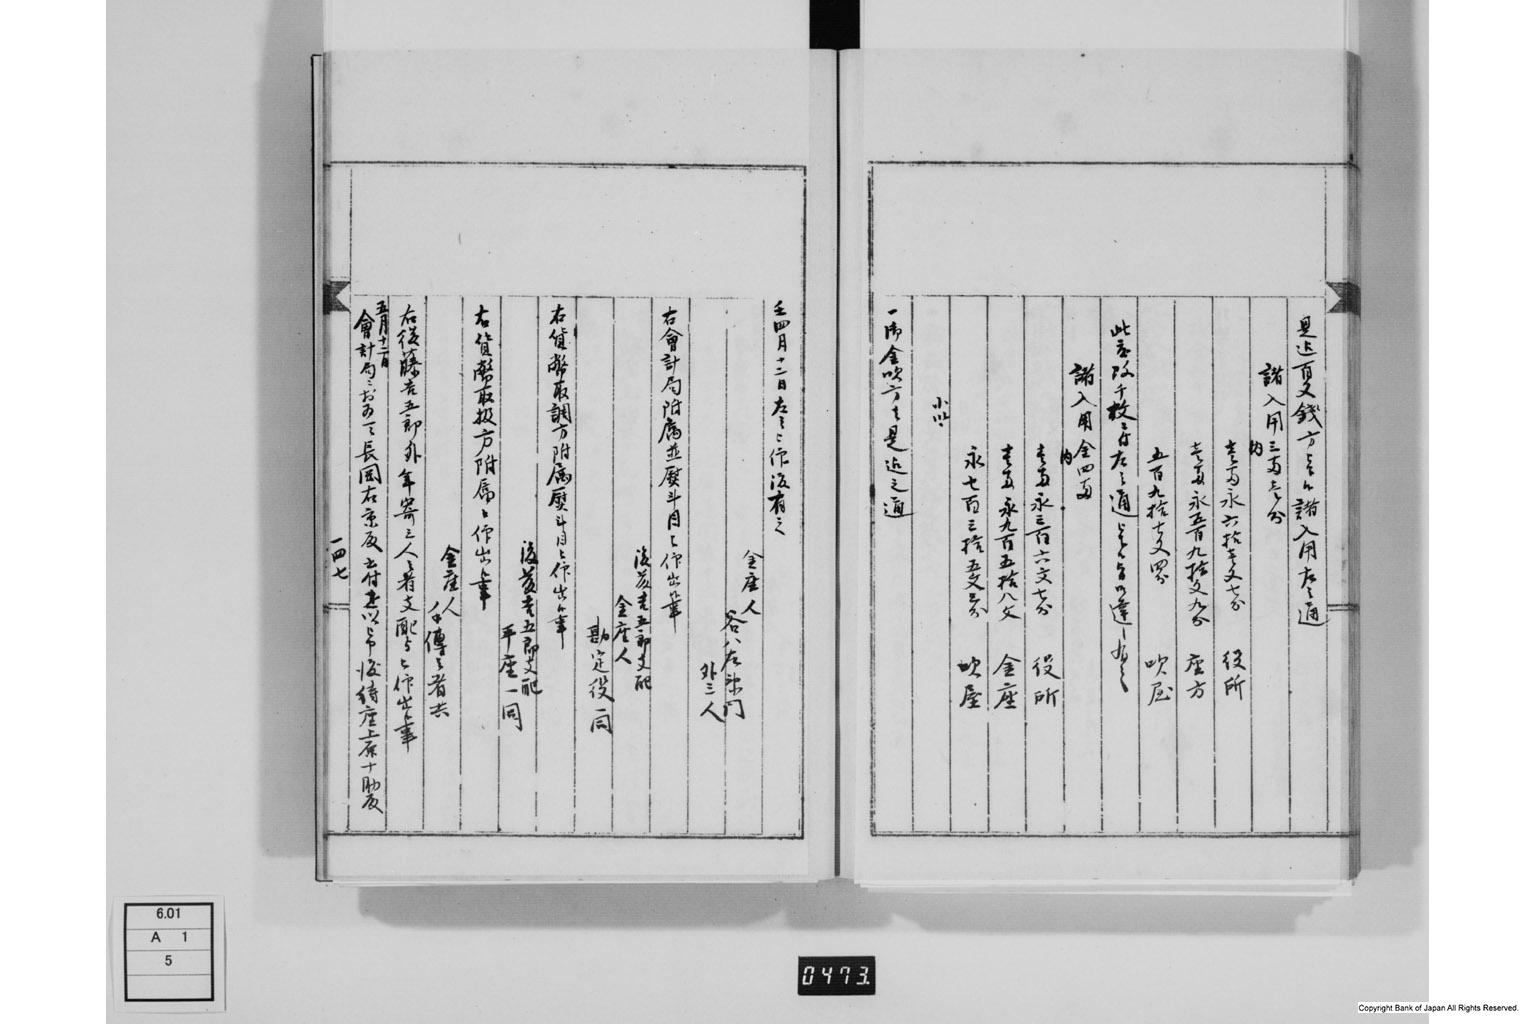 是迄百文錢方諸入用左之通
諸入用三両
内
永六拾壱文七分 役所
永五百九拾文九分 座方
五百九拾文四分 吹屋
此度改千枚ニ付左之通
諸入用金四両
内
壱両永三百六文七分 役所
壱両永九百五拾八文 金座
永七百三拾五文三分 吹屋
小以
一御金吹方者是迄之通
壬四月十二日左之被仰渡有之
金座人
谷八左衛門
外三人
右會計局附属並熨斗目被仰出候事
後藤吉五郎支配
金座人
勘定役一同
右貨幣取調方附属熨斗目被仰出候事
後藤吉五郎支配
平座一同
右貨幣取扱方附属被仰出候事
金座人
手傳之者共
右後藤吉五郎外年寄三人之者支配被仰出候事
五月十二日
會計局ニおゐて長岡右京殿書付を以 後待座上原十助殿
一四七
6.01
A 1
5
0473.
Copyright Bank of Japan All Rights Reserved.